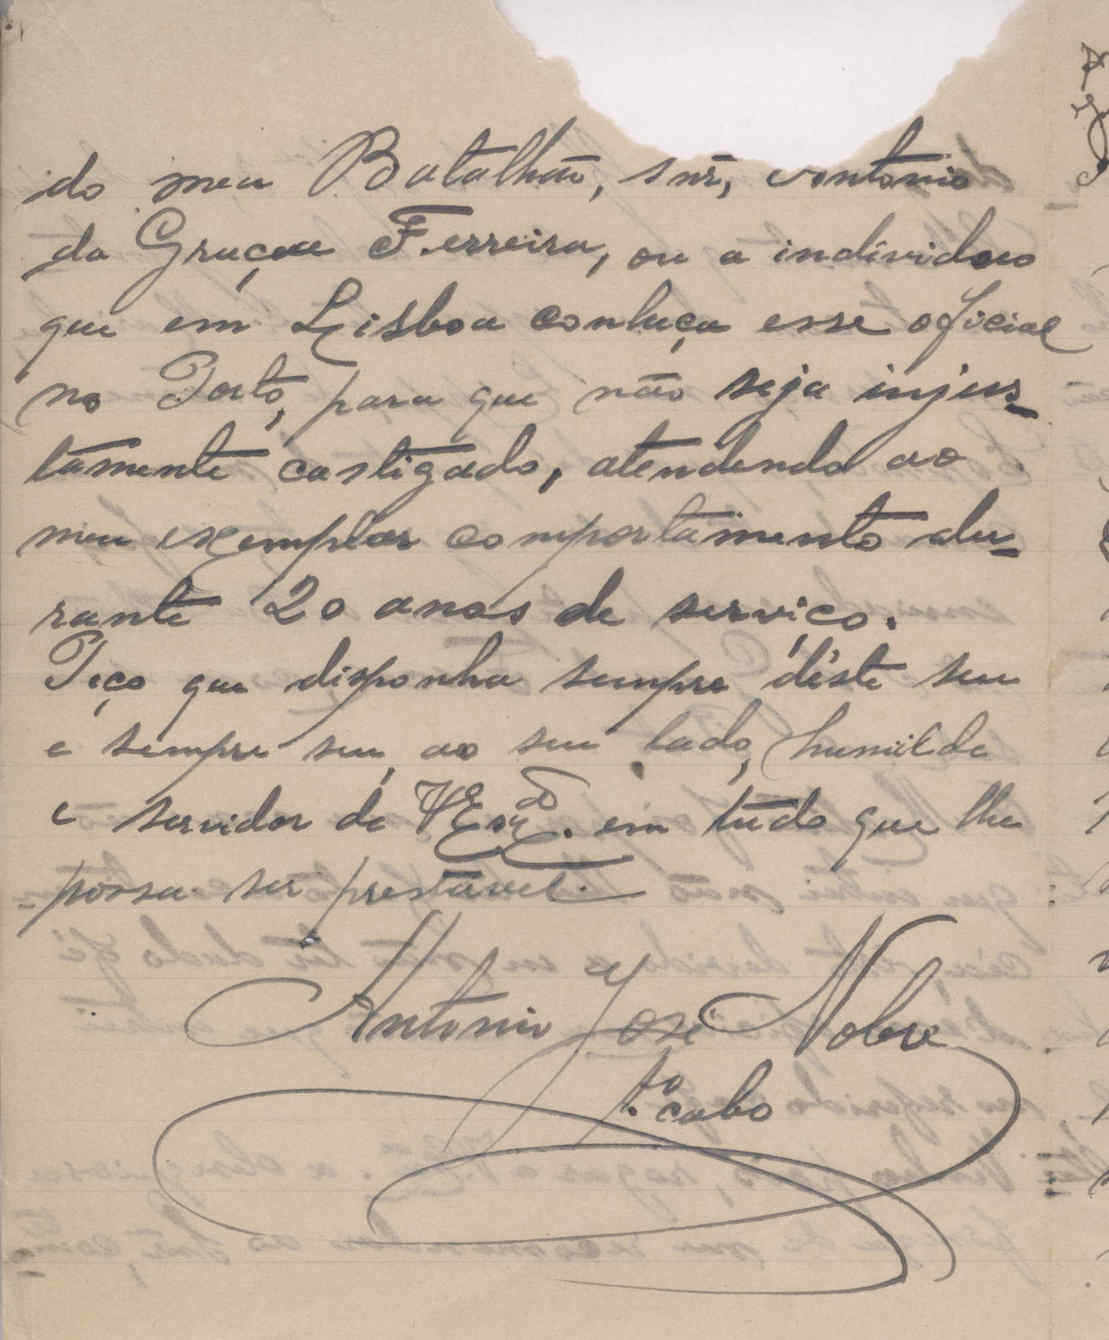 do meu Batalhão, snr, Antonio
da Graça Ferreira, ou a indívidoo
que em Lisboa conheça esse oficial
no Porto, para que não seja injus-
tamente castigado, atendendo ao
meu exemplar comportamento du-
rante 20 anos de serviço.
Peço que disponha sempre déste seu
e sempre seu, ao seu lado, humilde
e servidor de V. Exª. em tudo que lhe
possa ser prestavel.
Antonio José Nobre
1.º cabo